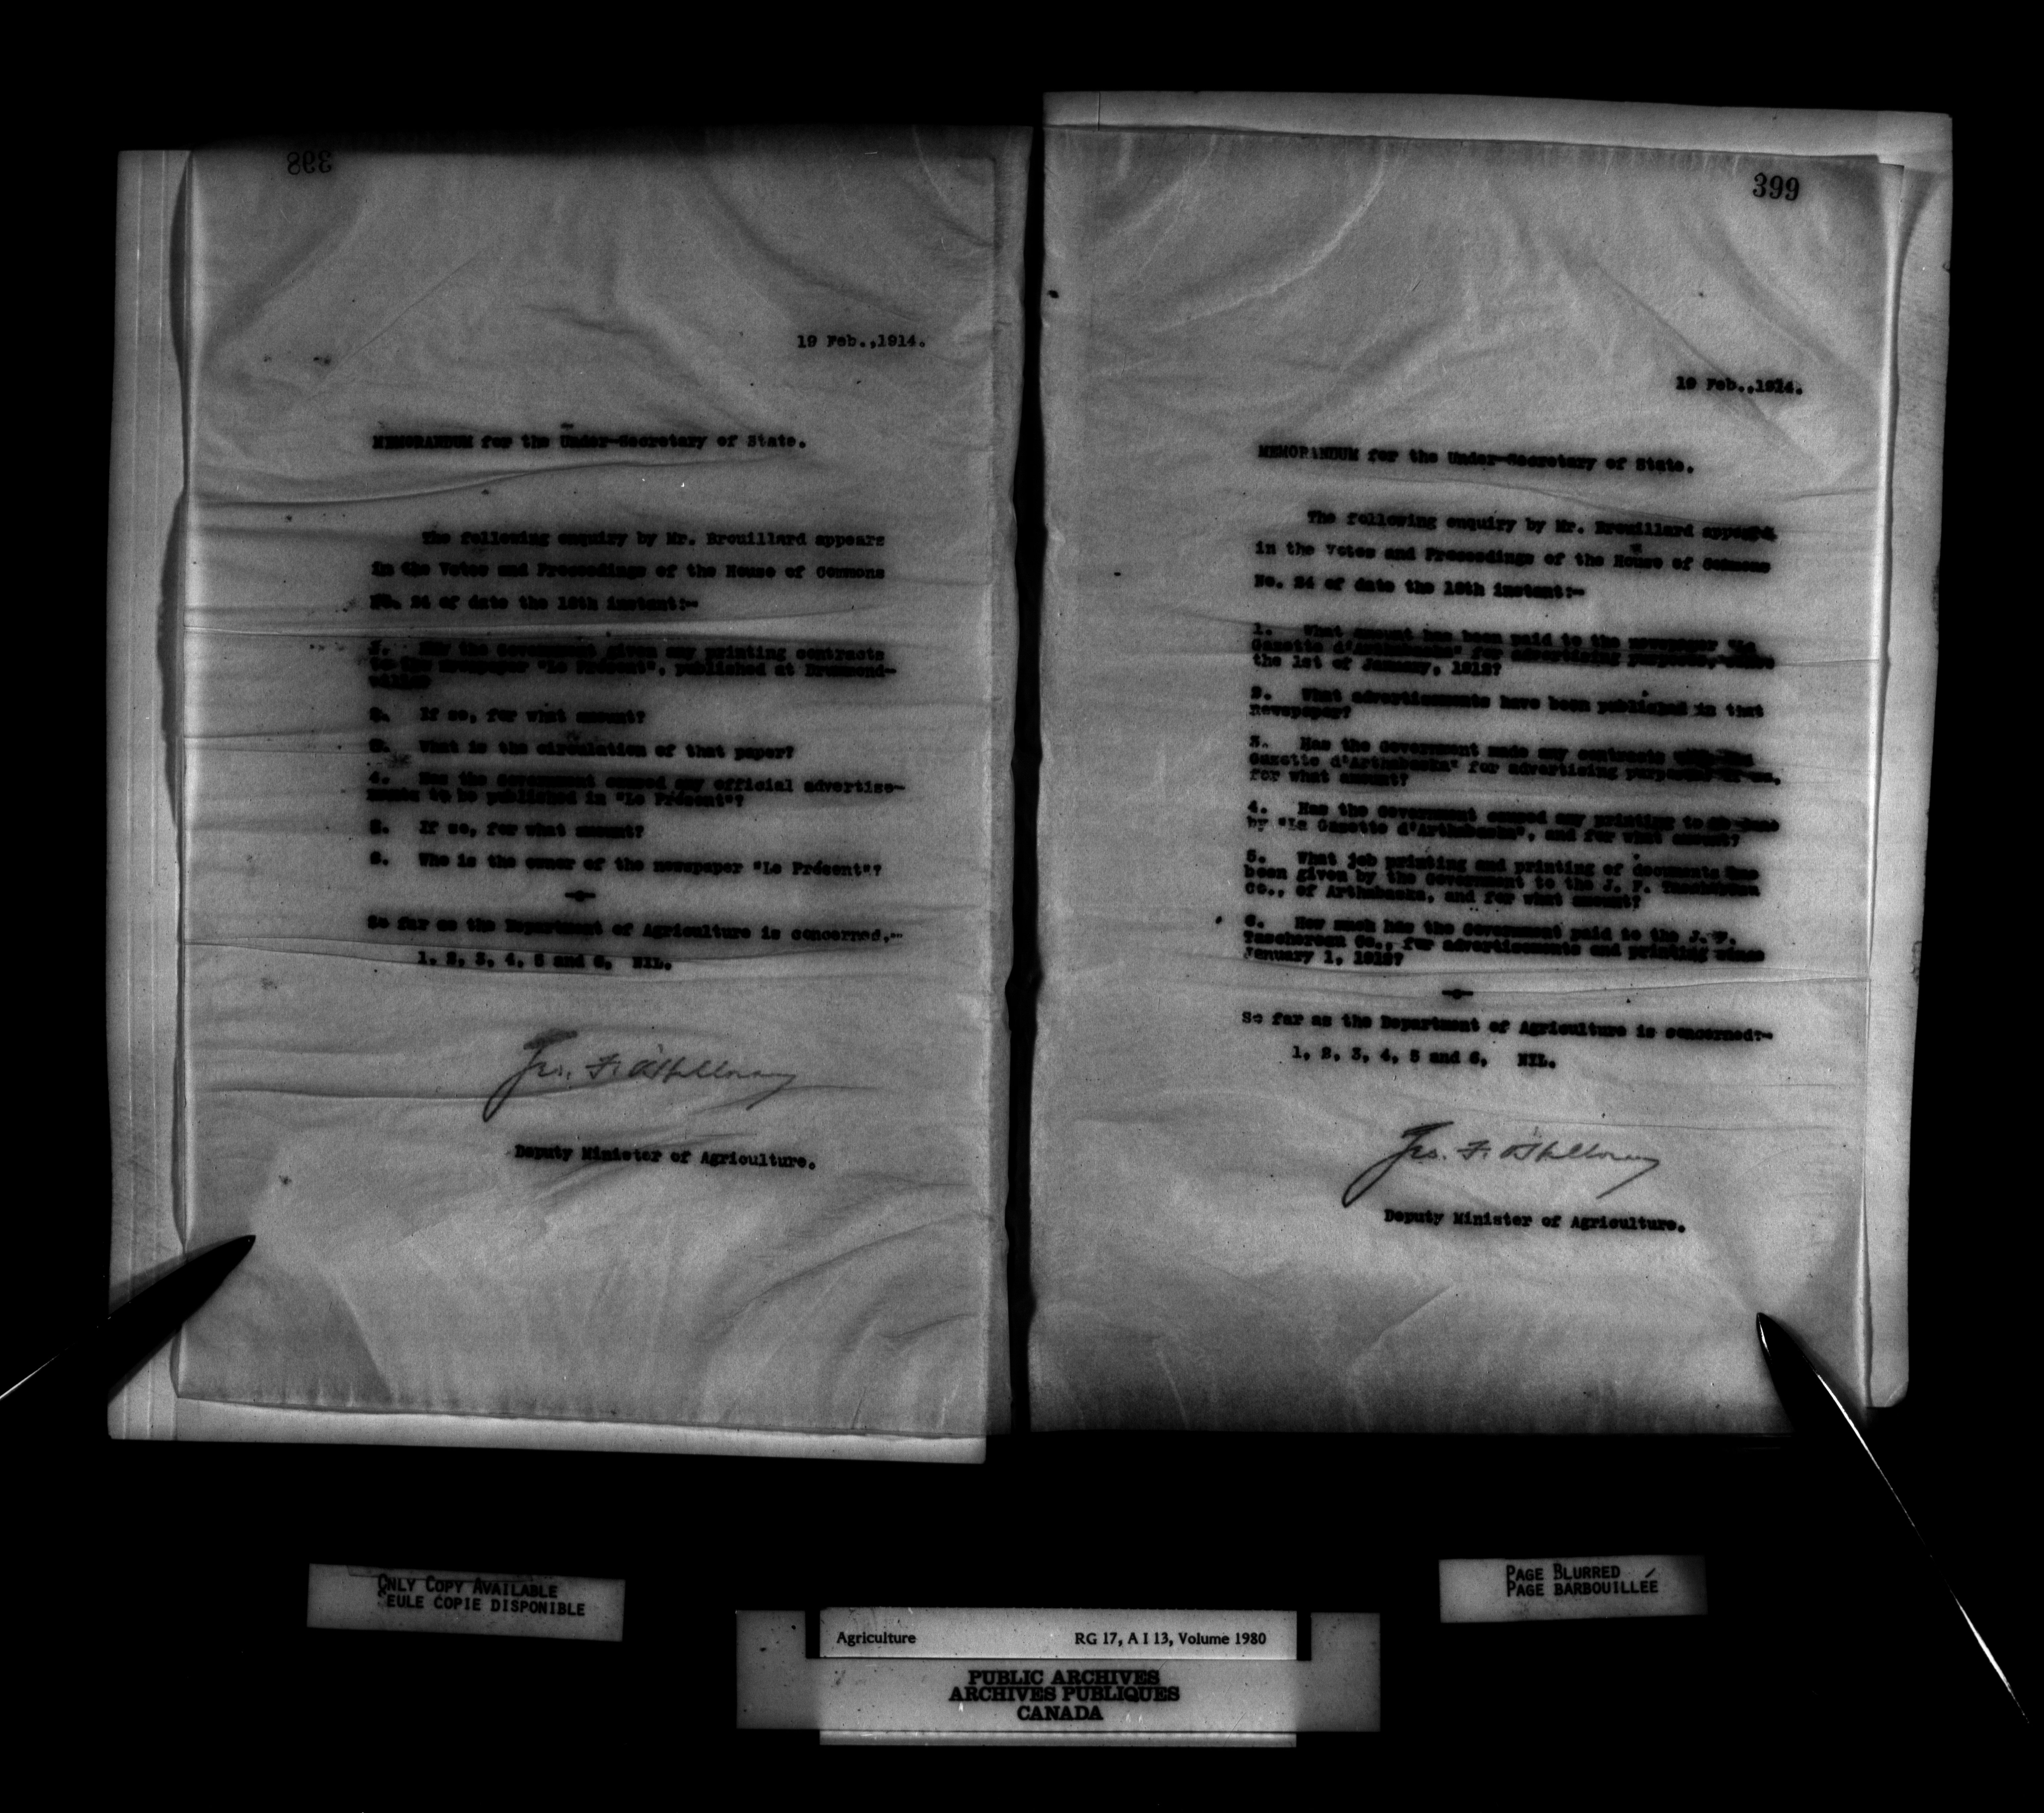 398
19 Feb.,1914.
MEMORANDUM for the Under-Secretary of State.
The following enquiry by Mr. Brouillard appears
in the Votes and Proceedings of the House of Commons
No. 24 of date the 18th instant:-
1. Has the Government given any printing contracts
to the Newspaper "Le Présent", published at Drummond-
ville?
2. If so, for what amount?
3. What is the circulation of that paper?
4. Has the Government caused any official advertise-
ments to be published in "Le Présent"?
5. If so, for what amount?
6. Who is the owner of the newspaper "Le Présent"?
So far as the Department of Agriculture is concerned,--
1, 2, 3, 4, 5 and 6, NIL.
Deputy Minister of Agriculture.
399
19 Feb.,1914.
MEMORANDUM for the Under-Secretary of State.
The following enquiry by Mr. Brouillard appears
in the Votes and Proceedings of the House of Commons
No. 24 of date the 18th instant:-
1. What amount has been paid to the newspaper "La
Gazette d'Arthabaska" for advertising purposes, since
the 1st of January, 1912?
2. What advertisements have been published in that
Newspaper?
3. Has the Government made any contracts with
Gazette d'Arthabaska" for advertising purposes? If so,
for what amount?
4. Has the Government caused any printing to be done
by "La Gazette d'Arthabaska", and for what amount?
5. What job printing and printing of documents has
been given by the Government to the J. F. Taschereau
Co., of Arthabaska, and for what amount?
6. How much has the Government paid to the J. F.
Taschereau Co., for advertisements and printing since
January 1, 1912?
So far as the Department of Agriculture is concerned:-
1, 2, 3, 4, 5 and 6, NIL.
Deputy Minister of Agriculture.
ONLY COPY AVAILABLE
SEULE COPIE DISPONIBLE
PAGE BLURRED
PAGE BARBOUILLÉE
Agriculture RG 17, A I 13, Volume 1980
PUBLIC ARCHIVES
ARCHIVES PUBLIQUES
CANADA